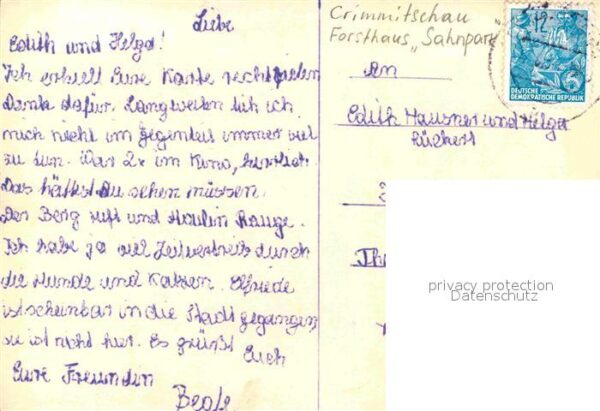 Liebe
Edith und Helga!
Ich erhielt Eure Karte recht vielen
Dank dafür. Langweilen tuh ich
mich nicht im gegenteil immer viel
zu tun. War 2x im Kino, herrlich.
Das hättest Du sehen müssen.
Der Berg ruft und Moulin Rouge.
Ich habe ja viel Zeitvertreib durch
die Hunde und Katzen. Elfriede
ist scheinbar in die Stadt gegangen
sie ist nicht hier. Es grüßt Euch
Eure Freundin
Beate
Crimmitschau
Forsthaus „Sahnpark"
12
DEUTSCHE
DEMOKRATISCHE REPUBLIK
6
An
Edith Hausner und Helga
Th
privacy protection
Datenschutz